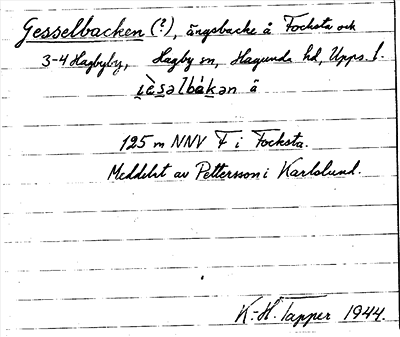 Gesselbacken (?), ängsbacke å Focksta och
3-4 Hagbyby, Hagby sn, Hagunda hd, Upps. l.
i̯èsəlbákən ä
125 m NNV F i Focksta.
Meddelat av Pettersson i Karlslund.
K.-H. Tapper 1944.